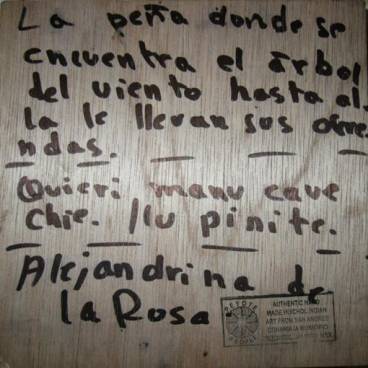 La peña donde se
encuentra el árbol
del viento hasta al
la le llevan sus ofre
ndas.
Quieri manu caue
chie. /lu pinite.
Alejandrina de
la Rosa
AUTHENTIC HAND
MADE HUICHOL INDIAN
ART FROM SAN ANDRES